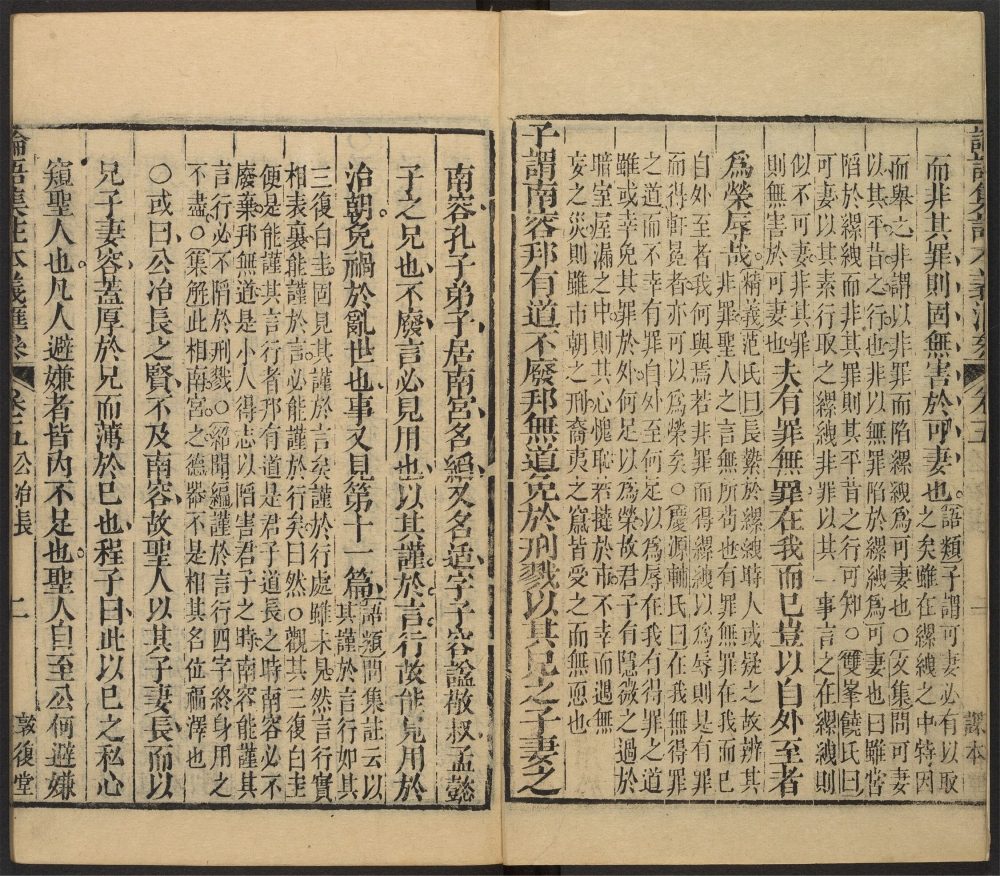 論語集註本義匯參 卷五 一 課本
而非其罪則固無害於可妻也語類子謂可妻必有以取
之矣雖在縲絏之中特因
而舉之非謂以非罪而陷縲絏為可妻也○文集問可妻
以其平昔之行也非以無罪陷於縲絏為可妻也曰雖嘗
陷於縲絏而非其罪則其平昔之行可知○雙峯饒氏曰
可妻以其素行取之縲絏非罪以其一事言之在縲絏則
似不可妻非其罪
則無害於可妻也
夫有罪無罪在我而已豈以自外至者
為榮辱哉精義范氏曰長縶於縲絏時人或疑之故辨其
非罪聖人之言無所茍也有罪無罪在我而已
自外至者我何與焉若非罪而得縲絏以為辱則是有罪
而得軒冕者亦可以為榮矣○慶源輔氏曰在我無得罪
之道而不幸有罪自外至何足以為辱在我有得罪之道
雖或幸免其罪於外何足以為榮故君子有隱微之過於
暗室屋漏之中則其心愧恥若撻於市不幸而遇無
妄之災則雖市朝之刑裔夷之竄皆受之而無恧也
子謂南容邦有道不廢邦無道免於刑戮以其兄之子妻之
南容孔子弟子居南宮名縚又名适字子容謚敬叔孟懿
子之兄也不廢言必見用也以其謹於言行故能見用於
治朝免禍於亂世也事又見第十一篇語類問集註云以
其謹於言行如其
三復白圭固見其謹於言矣謹於行處雖未見然言行實
相表裏能謹於言必能謹於行矣曰然○觀其三復白圭
便是能謹其言行者邦有道是君子道長之時南容必不
廢棄邦無道是小人得志以陷害君子之時南容能謹其
言行必不陷於刑戮○紹聞編謹於言行四字終身用之
不盡○集解此相南宮之德器不是相其名位福澤也
○或曰公冶長之賢不及南容故聖人以其子妻長而以
兄子妻容蓋厚於兄而薄於己也程子曰此以己之私心
窺聖人也凡人避嫌者皆內不足也聖人自至公何避嫌
論語集註本義匯參 卷五公冶長 二 敦復堂